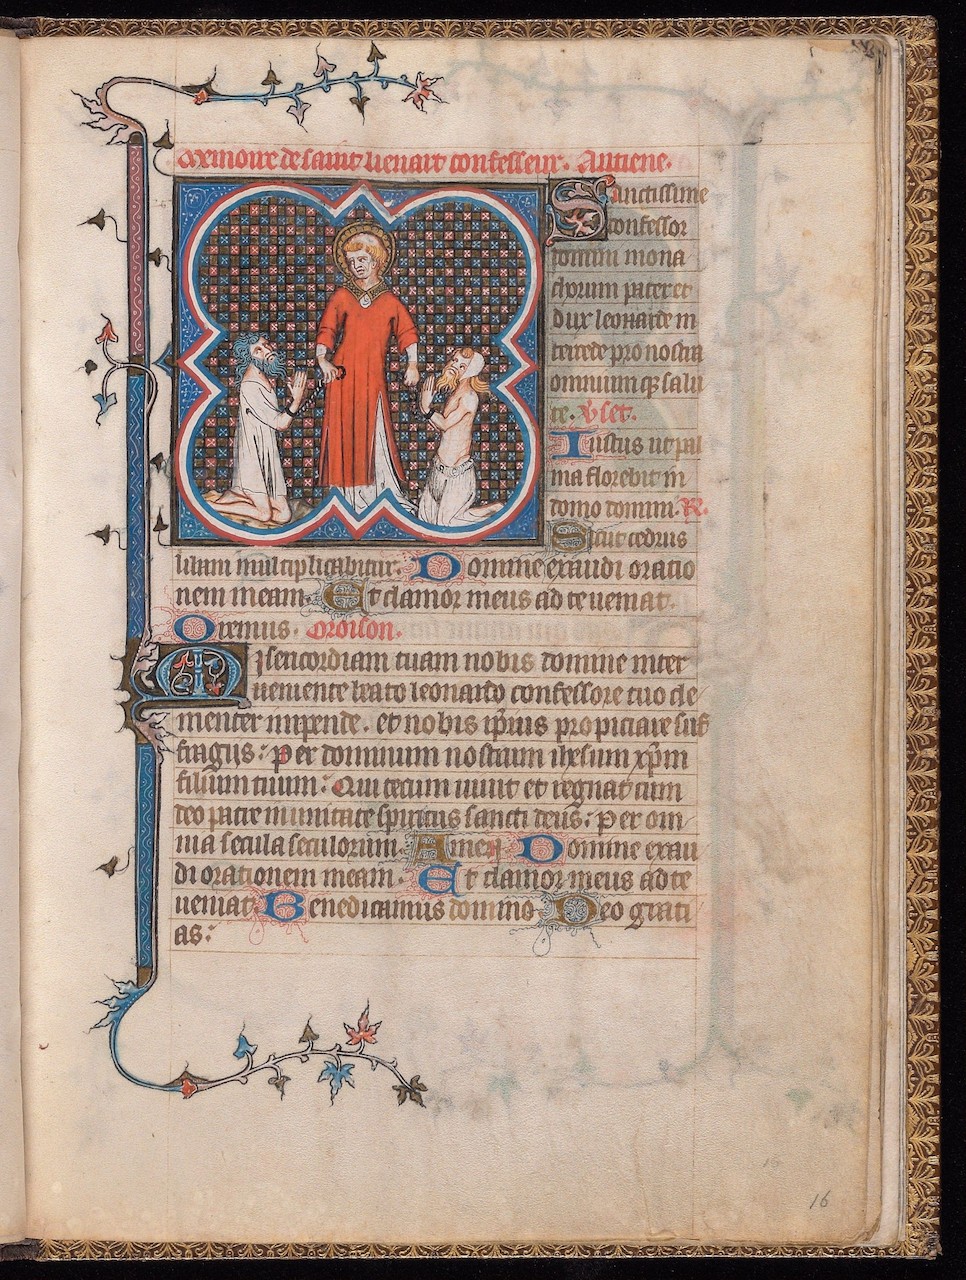 Memoire de saint lienart confesseur. Antiene.
Sanctissime
confessor
domini mona
chorum pater et
dux leonarde in
tercede pro nostra
omnium qȝ salu
te. v̄set.
Iustus ut pal
ma florebit in
domo domini. R.
Sicut cedrus
libani multiplicabitur. Domine exaudi oratio
nem meam. Et clamor meus ad te veniat.
Oremus. Oroison.
Misericordiam tuam nobis domine inter
veniente beato leonardo confessore tuo cle
menter impende. et nobis ip̄ius propiciare suf
fragijs: Per dominum nostrum ihesum xp̄m
filium tuum: Qui tecum vivit et regnat cum
deo patre in unitate spiritus sancti deus: Per om
nia secula seculorum. Amen. Domine exau
di orationem meam. Et clamor meus ad te
veniat. Benedicamus domino. Deo grati
as:
16